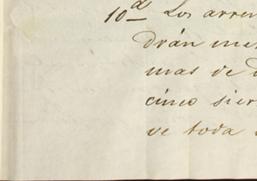 10ª Los arren
drán me
mas de
cinco sier
ve toda